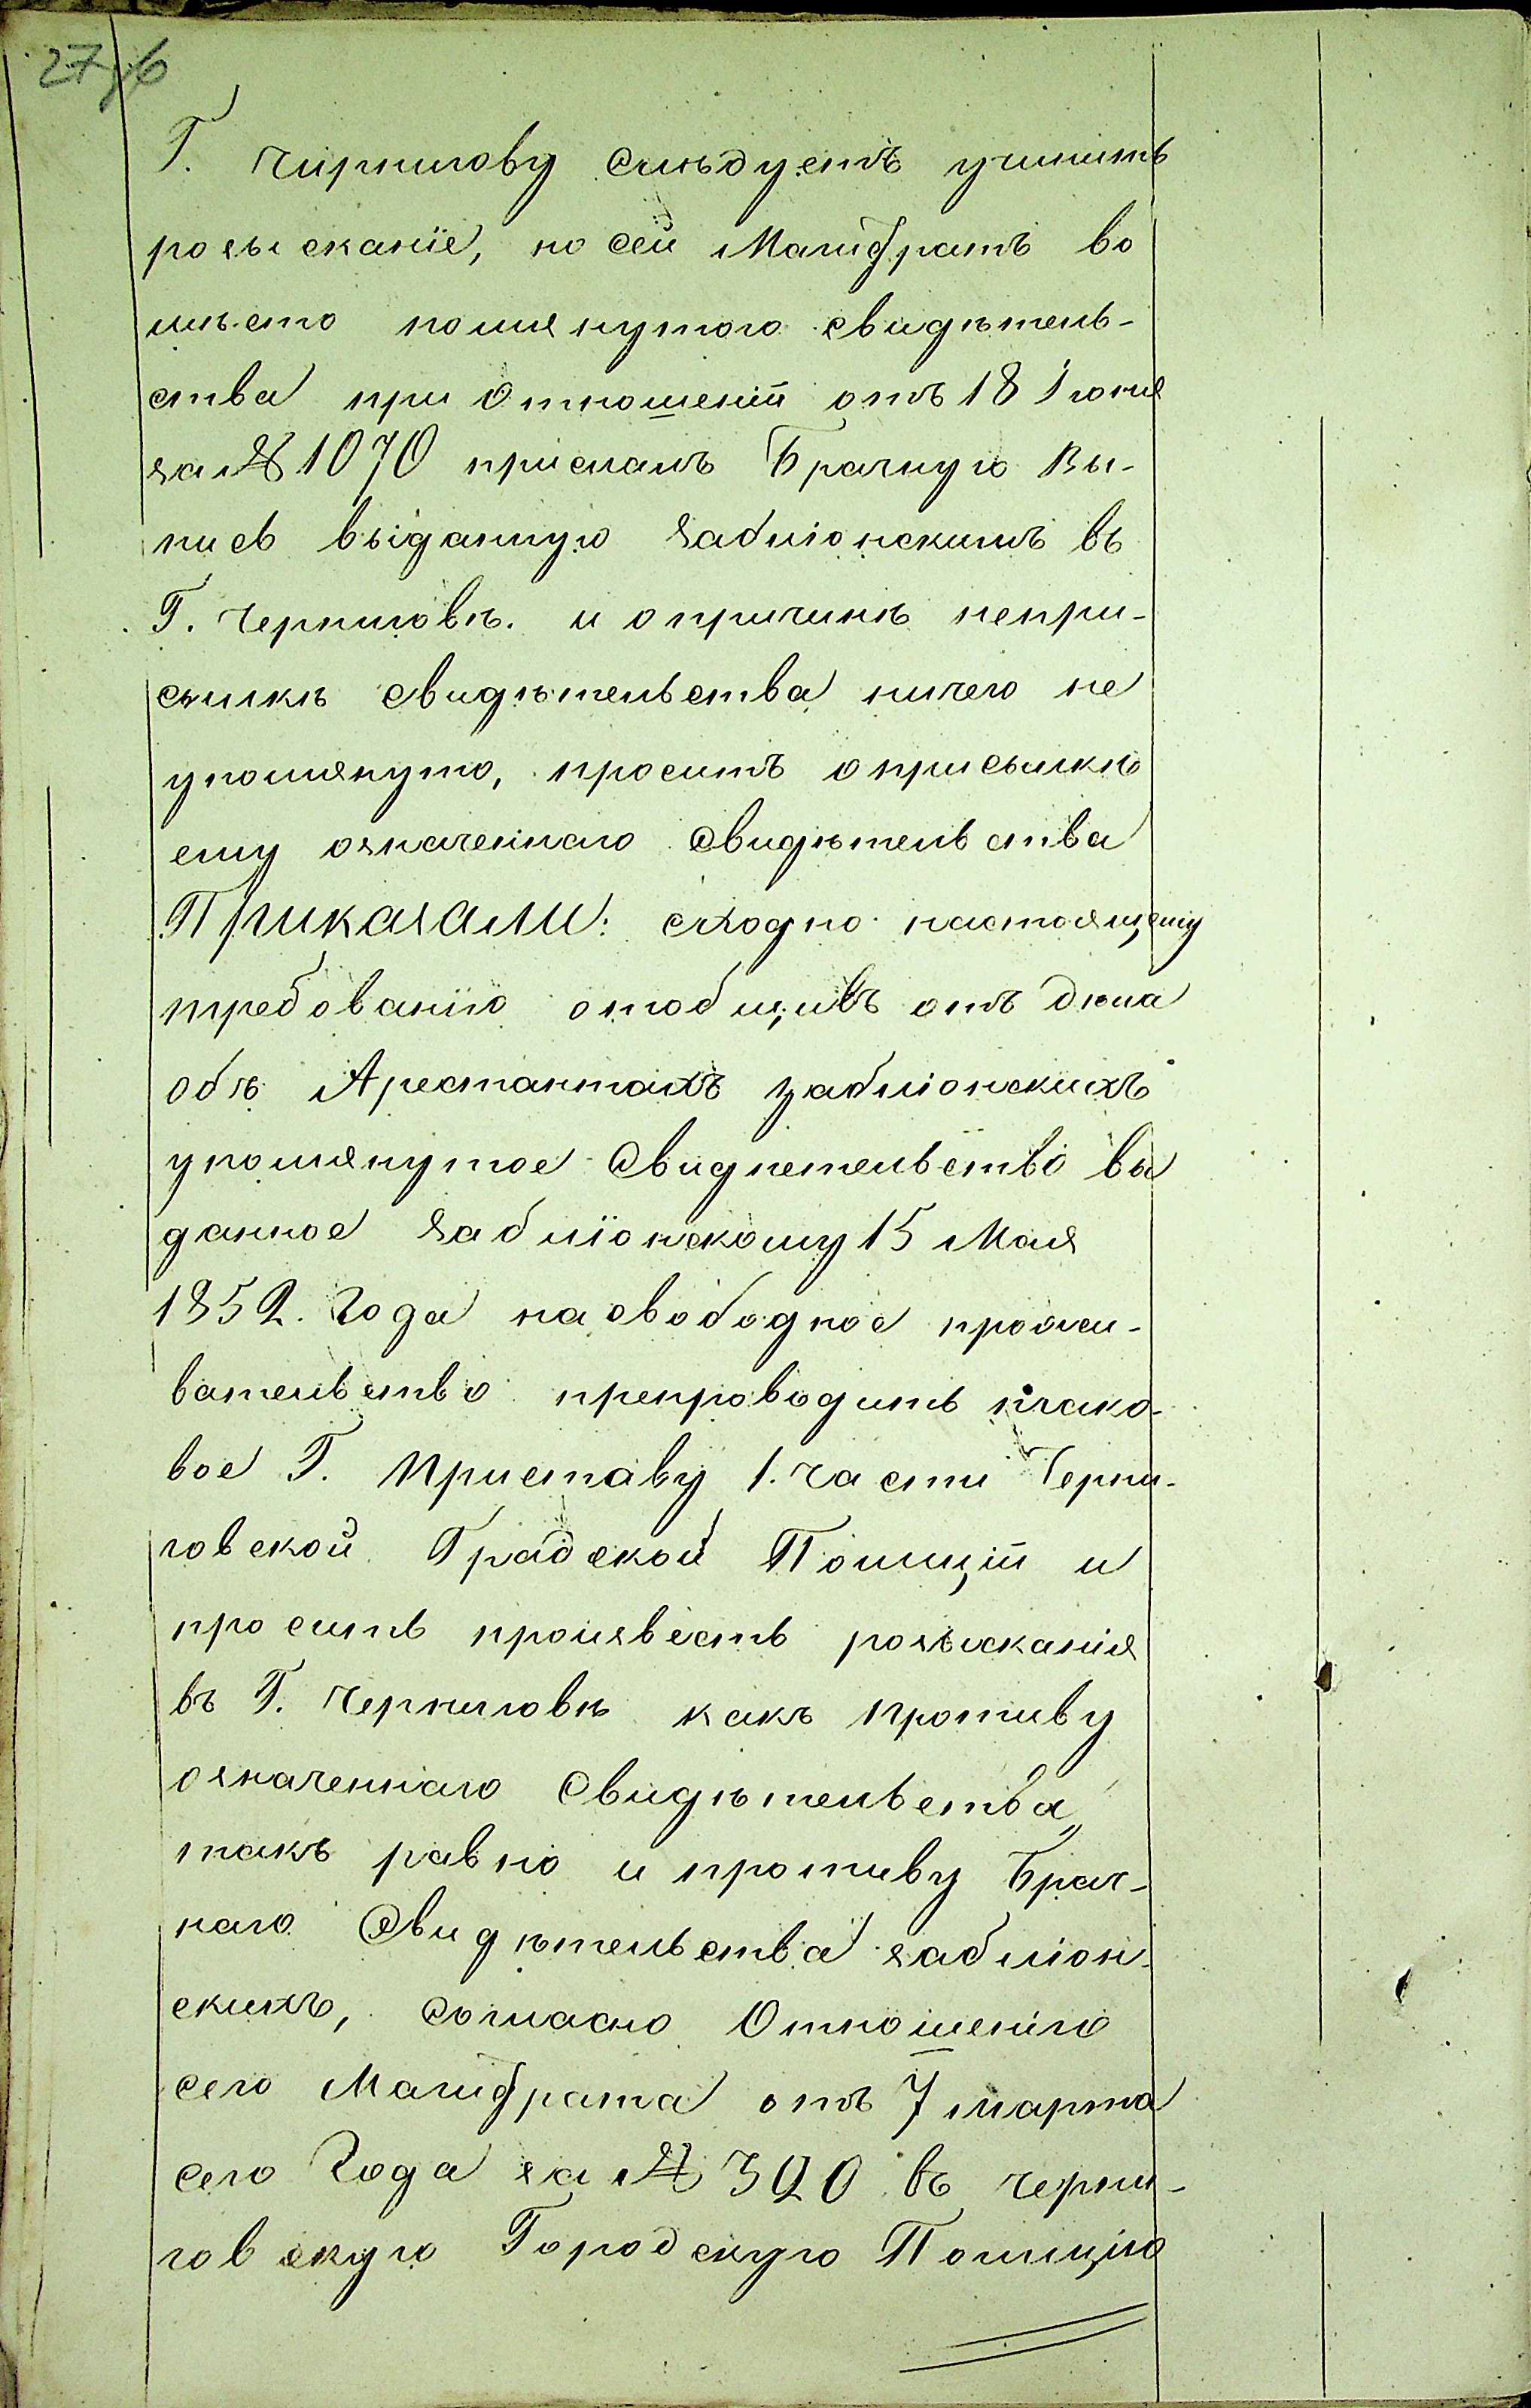 27об
Г. Чирнигову слѣдуетъ учинить
розысканіе, но сей Магистратъ во
мѣсто помянутого свидѣтель-
ства при отношеніи отъ 18 Іюня
за № 1070 прислалъ Брачную Вы-
пись выданную Заблюнскимъ въ
Г. Черниговѣ. и о причинѣ непри-
сылкѣ свидѣтельства ничего не
упомянуто, проситъ о присылкѣ
ему означеннаго свидѣтельства
Приказали: сходно настоящему
требованію отобщивъ отъ дѣла
объ Арестантахъ Заблюнскихъ
упомянутое Свидѣтельство вы
данное Заблюнскому 15 Мая
1852. Года на свободное прожи-
вательство препроводить тако-
вое Г. Приставу 1. Части Черни-
говской Градской Полиціи и
просить произвесть розысканія
въ Г. Черниговѣ какъ противу
означеннаго Свидѣтельства,
такъ равно и противу Брач-
наго Свидѣтельства Заблюн-
скихъ, Согласно Отношенію
сего Магистрата отъ 7 марта
сего Года за № 320 въ Черни-
говскую Городскую Полицію